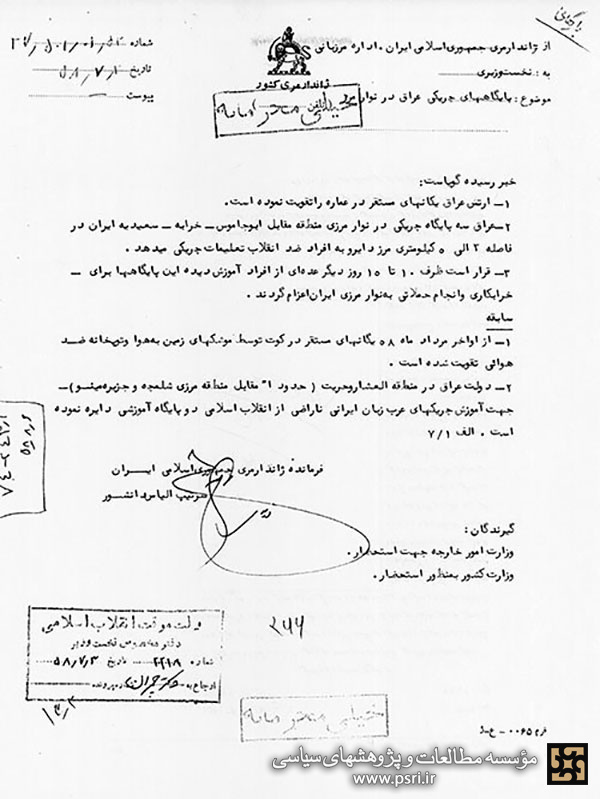 از ژاندارمری جمهوری‌اسلامی ایران ـ اداره مرزبانی
به : نخست‌وزیری
موضوع : پایگاههای چریکی عراق در نوار مرز
ژاندارمری کشور
خیلی محرمانه
شماره
تاریخ ۵۸/۷/۲
پیوست —
خبر رسیده گویاست :
۱ـ ارتش عراق یگانهای مستقر در عماره را تقویت نموده است .
۲ـ عراق سه پایگاه چریکی در نوار مرزی منطقه مقابل ابوجاموس ـ خرابه ـ سعیدیه ایران در
فاصله ۲ الی ۵ کیلومتری مرز دایر و به افراد ضد انقلاب تعلیمات چریکی میدهد .
۳ـ قرار است ظرف ۱۰ تا ۱۵ روز دیگر عده‌ای از افراد آموزش دیده این پایگاهها برای ـ
خرابکاری و انجام حملاتی به نوار مرزی ایران اعزام گردند .
سابقه
۱ـ از اواخر مرداد ماه ۵۸ یگانهای مستقر در کوت توسط موشکهای زمین به هوا و توپخانه ضد
هوائی تقویت شده است .
۲ـ دولت عراق در منطقه العشار و حریت ( حدودا" مقابل منطقه مرزی شلمچه و جزیره مینو ) ـ
جهت آموزش چریکهای عرب زبان ایرانی ناراضی از انقلاب اسلامی دو پایگاه آموزشی دایره نموده
است . الف ۷/۱
فرمانده ژاندارمری جمهوری اسلامی ایران
سرتیپ الیاس دانشور
گیرندگان :
وزارت امور خارجه جهت استحضار .
وزارت کشور بمنظور استحضار .
دولت موقت انقلاب اسلامی
دفتر مخصوص نخست وزیر
شماره ۲۲۱۸ تاریخ ۵۸/۷/۳
ارجاع به دکتر چمران شماره پرونده
۲۶۶
خیلی محرمانه
فرم ۰۰۶۵ ـ ع ـ د
مؤسسه مطالعات و پژوهشهای سیاسی
www.psri.ir